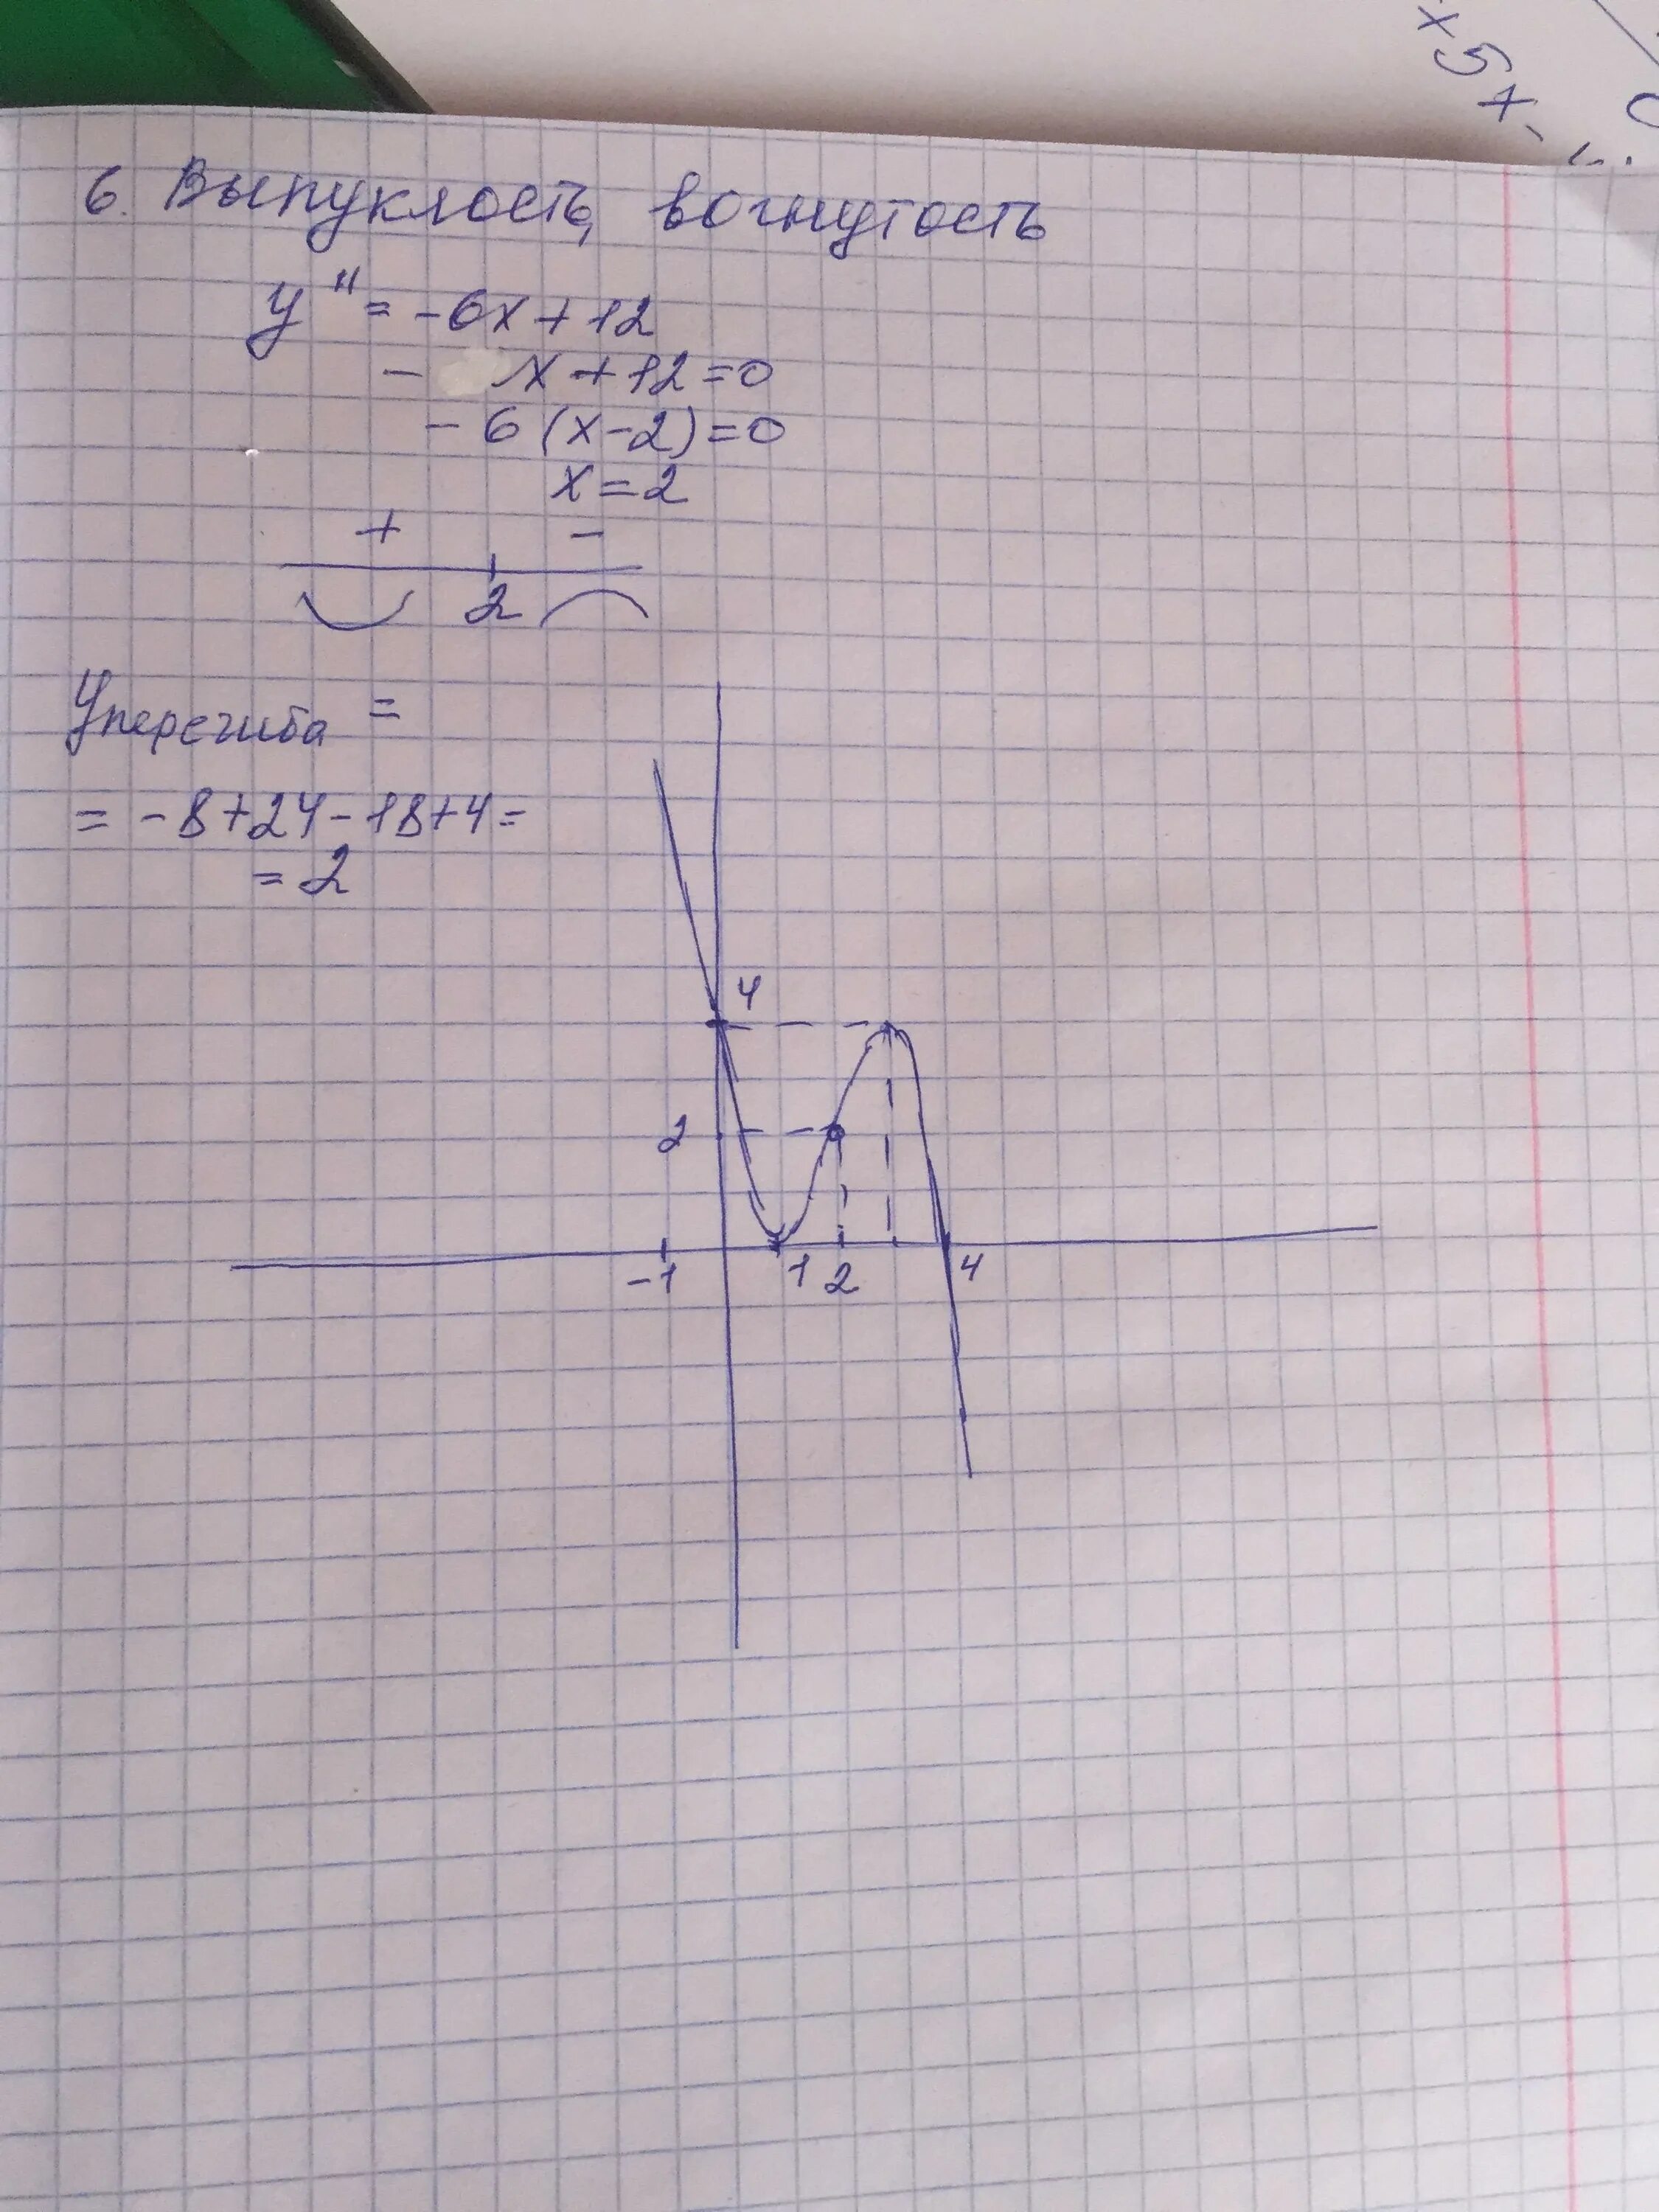 6. Выпуклость, вогнутость
y'' = -6x + 12
- x + 12 = 0
- 6 (x - 2) = 0
x = 2
+ -
2
Yперегиба =
= - 8 + 24 - 18 + 4 =
= 2
4
2
-1 1 2 4